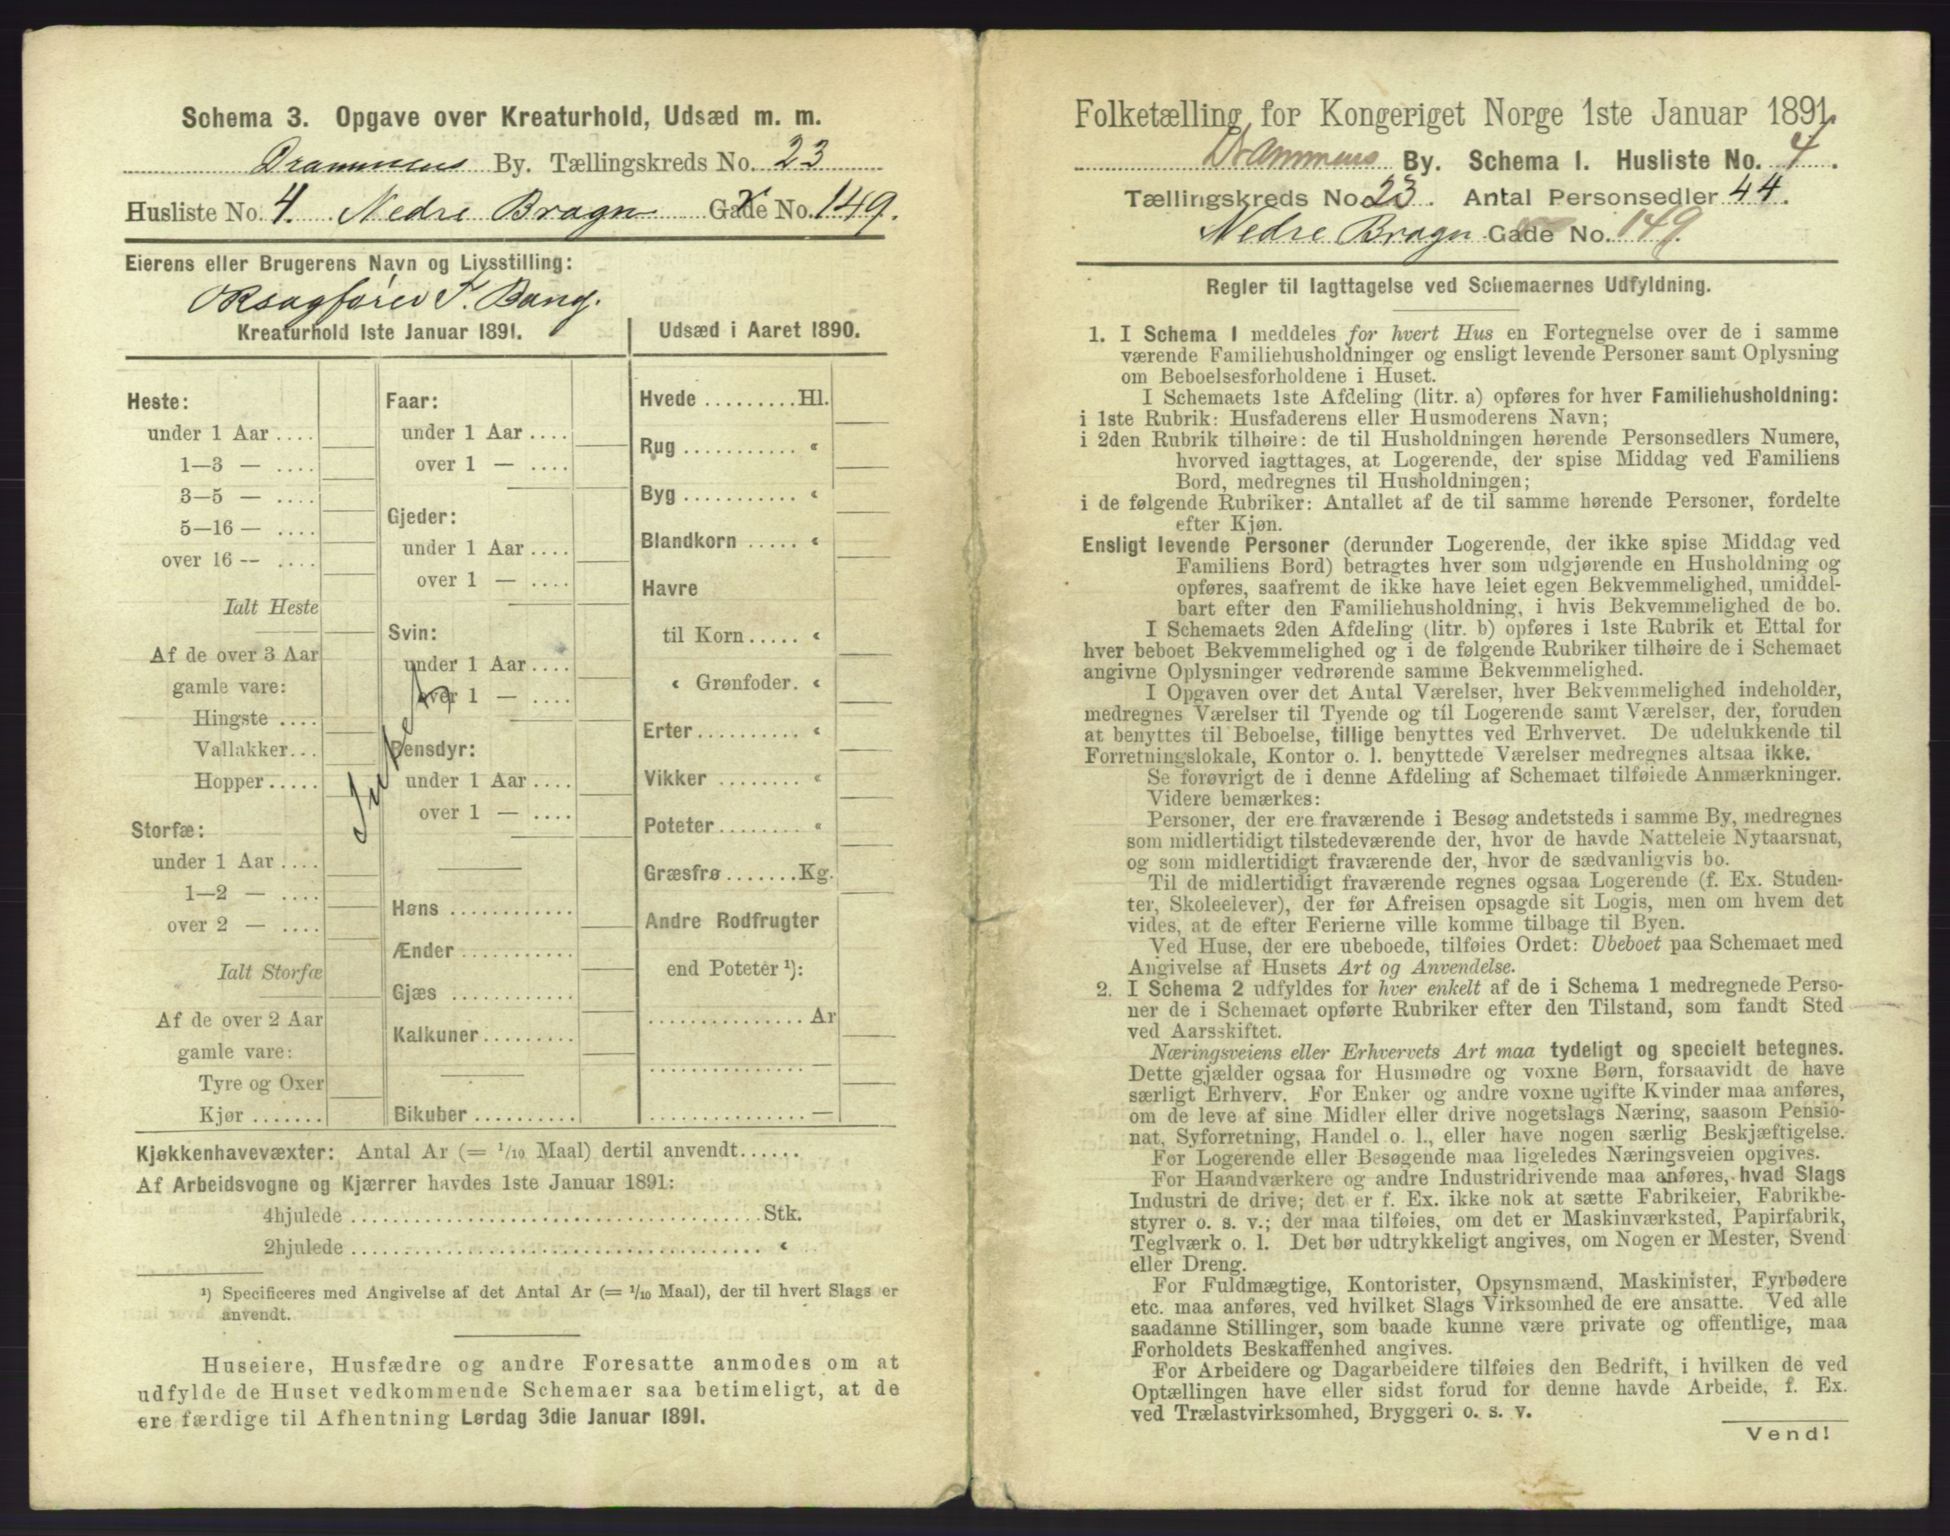 Schema 3. Opgave over Kreaturhold, Udsæd m. m.
Drammens By. Tællingskreds No. 23
Husliste No. 4. Nedre Bragn Gade No. 149.
Eierens eller Brugerens Navn og Livsstilling:
ORsagfører F. Bang.
Kreaturhold 1ste Januar 1891.
Heste:
under 1 Aar ....
1—3 — ....
3—5 — ....
5—16 — ....
over 16 — ....
Ialt Heste
Af de over 3 Aar
gamle vare:
Hingste ....
Vallakker...
Hopper.....
Storfæ:
under 1 Aar ....
1—2 — ....
over 2 — ....
Ialt Storfæ
Af de over 2 Aar
gamle vare:
Tyre og Oxer
Kjør .......
Faar:
under 1 Aar ....
over 1 — ....
Gjeder:
under 1 Aar ....
over 1 — ....
Svin:
under 1 Aar ....
over 1 — ....
Rensdyr:
under 1 Aar ....
over 1 — ....
Intet
Høns ............
Ænder ..........
Gjæs ............
Kalkuner .........
Bikuber ..........
Udsæd i Aaret 1890.
Hvede .........Hl.
Rug ........... «
Byg ........... «
Blandkorn ..... «
Havre
til Korn ..... «
« Grønfoder. «
Erter .......... «
Vikker ......... «
Poteter ........ «
Græsfrø .......Kg.
Andre Rodfrugter
end Poteter ¹):
............... Ar
............... —
............... —
Kjøkkenhavevæxter: Antal Ar (= 1/10 Maal) dertil anvendt......
Af Arbeidsvogne og Kjærrer havdes 1ste Januar 1891:
4hjulede ........................................Stk.
2hjulede ........................................ «
¹) Specificeres med Angivelse af det Antal Ar (= 1/10 Maal), der til hvert Slags er
anvendt.
Huseiere, Husfædre og andre Foresatte anmodes om at
udfylde de Huset vedkommende Schemaer saa betimeligt, at de
ere færdige til Afhentning Lørdag 3die Januar 1891.
Folketælling for Kongeriget Norge 1ste Januar 1891.
Drammens By. Schema 1. Husliste No. 4.
Tællingskreds No. 23. Antal Personsedler 44.
Nedre Bragn Gade No. 149.
Regler til Iagttagelse ved Schemaernes Udfyldning.
1. I Schema 1 meddeles for hvert Hus en Fortegnelse over de i samme
værende Familiehusholdninger og ensligt levende Personer samt Oplysning
om Beboelsesforholdene i Huset.
I Schemaets 1ste Afdeling (litr. a) opføres for hver Familiehusholdning:
i 1ste Rubrik: Husfaderens eller Husmoderens Navn;
i 2den Rubrik tilhøire: de til Husholdningen hørende Personsedlers Numere,
hvorved iagttages, at Logerende, der spise Middag ved Familiens
Bord, medregnes til Husholdningen;
i de følgende Rubriker: Antallet af de til samme hørende Personer, fordelte
efter Kjøn.
Ensligt levende Personer (derunder Logerende, der ikke spise Middag ved
Familiens Bord) betragtes hver som udgjørende en Husholdning og
opføres, saafremt de ikke have leiet egen Bekvemmelighed, umiddel-
bart efter den Familiehusholdning, i hvis Bekvemmelighed de bo.
I Schemaets 2den Afdeling (litr. b) opføres i 1ste Rubrik et Ettal for
hver beboet Bekvemmelighed og i de følgende Rubriker tilhøire de i Schemaet
angivne Oplysninger vedrørende samme Bekvemmelighed.
I Opgaven over det Antal Værelser, hver Bekvemmelighed indeholder,
medregnes Værelser til Tyende og til Logerende samt Værelser, der, foruden
at benyttes til Beboelse, tillige benyttes ved Erhvervet. De udelukkende til
Forretningslokale, Kontor o. l. benyttede Værelser medregnes altsaa ikke.
Se forøvrigt de i denne Afdeling af Schemaet tilføiede Anmærkninger.
Videre bemærkes:
Personer, der ere fraværende i Besøg andetsteds i samme By, medregnes
som midlertidigt tilstedeværende der, hvor de havde Natteleie Nytaarsnat,
og som midlertidigt fraværende der, hvor de sædvanligvis bo.
Til de midlertidigt fraværende regnes ogsaa Logerende (f. Ex. Studen-
ter, Skoleelever), der før Afreisen opsagde sit Logis, men om hvem det
vides, at de efter Ferierne ville komme tilbage til Byen.
Ved Huse, der ere ubeboede, tilføies Ordet: Ubeboet paa Schemaet med
Angivelse af Husets Art og Anvendelse.
2. I Schema 2 udfyldes for hver enkelt af de i Schema 1 medregnede Perso-
ner de i Schemaet opførte Rubriker efter den Tilstand, som fandt Sted
ved Aarsskiftet.
Næringsveiens eller Erhvervets Art maa tydeligt og specielt betegnes.
Dette gjælder ogsaa for Husmødre og voxne Børn, forsaavidt de have
særligt Erhverv. For Enker og andre voxne ugifte Kvinder maa anføres,
om de leve af sine Midler eller drive nogetslags Næring, saasom Pensio-
nat, Syforretning, Handel o. l., eller have nogen særlig Beskjæftigelse.
For Logerende eller Besøgende maa ligeledes Næringsveien opgives.
For Haandværkere og andre Industridrivende maa anføres, hvad Slags
Industri de drive; det er f. Ex. ikke nok at sætte Fabrikeier, Fabrikbe-
styrer o. s. v.; der maa tilføies, om det er Maskinværksted, Papirfabrik,
Teglværk o. l. Det bør udtrykkeligt angives, om Nogen er Mester, Svend
eller Dreng.
For Fuldmægtige, Kontorister, Opsynsmænd, Maskinister, Fyrbødere
etc. maa anføres, ved hvilket Slags Virksomhed de ere ansatte. Ved alle
saadanne Stillinger, som baade kunne være private og offentlige, maa
Forholdets Beskaffenhed angives.
For Arbeidere og Dagarbeidere tilføies den Bedrift, i hvilken de ved
Optællingen have eller sidst forud for denne havde Arbeide, f. Ex.
ved Trælastvirksomhed, Bryggeri o. s. v.
Vend!